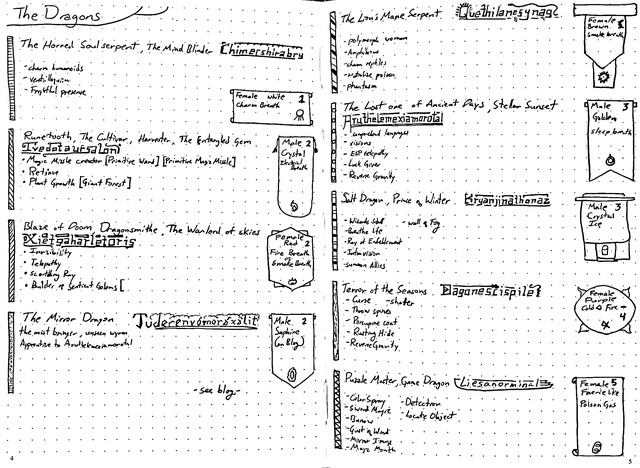 The Dragons
The Horned Soulserpent, The Mind Blinder Chimershirabry
- charm humanoids
- ventriloquism
- Frightful presence
Female white 1
Charm Breath
Runetooth, The Cultivar, Harvester, The Entangled Gem
• Magic Missle creator [Primitive Wand] [Primitive Magic Missle]
• Retinue
• Plant Growth [Giant Forest]
Male 2
Crystal
Breath
Blaze of Doom, Dragonsmithe, The Warlord of skies
• Invisibility
• Telepathy
• Scorching Ray
• Builder of Sentient Golems [
Female
Red 2
Fire Breath
or
Smoke Breath
The Mirror Dragon
the mist bringer, unseen wyrm
Apprentice to
Male 2
Saphire
(on Blog)
- see blog -
4
The Lion's Mane Serpent
- polymorph woman
- Amphibious
- charm reptiles
- neutralize poison
- phantasm
Female
Brown 1
Smoke breath
The Lost one of Ancient Days, Stellar Sunset
- comprehend languages
- visions
- ESP telepathy
- Luck Giver
- Reverse Gravity
Male 3
Golden
sleep breath
Salt Dragon, Prince of Winter, Kryanjinathonaz
- Wizards Shell - wall of Fog
- Breathe life
- Ray of Enfeeblement
- Infravision
- Summon Allies
Male 3
Crystal
Ice
Terror of the Seasons,
- Curse - shatter
- Throw spines
- Porcupine coat
- Rusting Hide
- Reverse Gravity
Female
Purple
Cold & Fire - 4
Puzzle Master, Game Dragon Liesanorminal
- Color Spray - Detection
- Sword Magic - Locate Object
- Banow
- Gust of Wind
- Mirror Image
- Magic Mouth
Female 5
Faerie like
Poison Gas
5